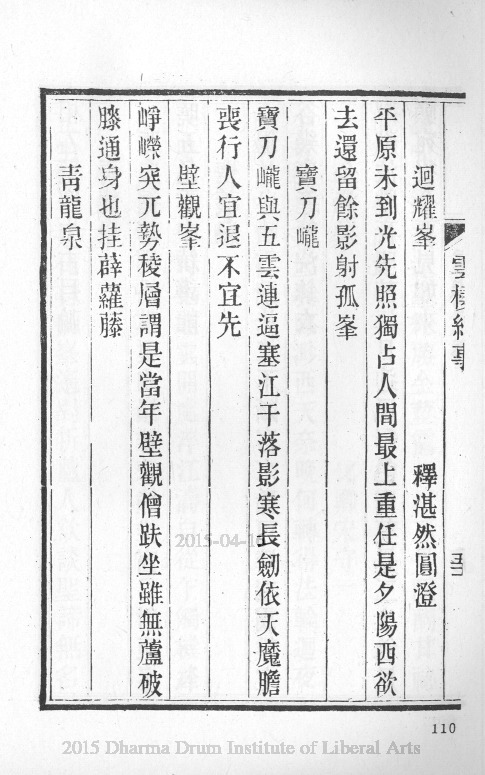 雲棲紀事
迴耀峯　釋湛然圓澄
平原未到光先照獨占人間最上重任是夕陽西欲
去還留餘影射孤峯
寶刀巄
寶刀巄與五雲連逼塞江干落影寒長劒依天魔膽
喪行人宜退不宜先
壁觀峯
崢嶸突兀勢稜層謂是當年壁觀僧趺坐雖無蘆破
膝通身也挂薜蘿藤
靑龍泉
110
2015-04-1
2015 Dharma Drum Institute of Liberal Arts